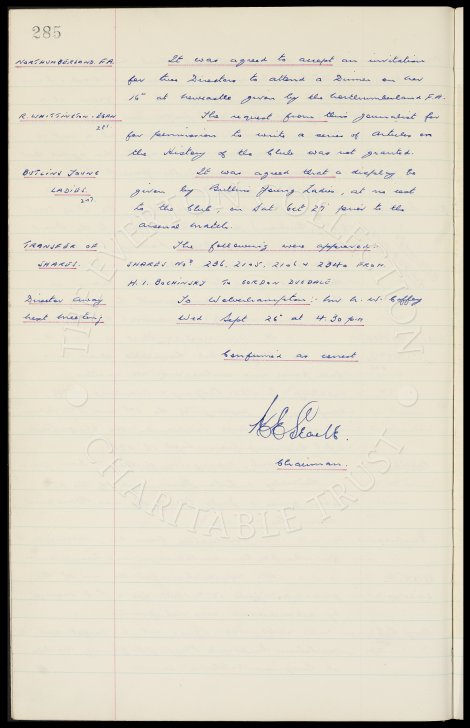 285
NORTHUMBERLAND. F.A. It was agreed to accept an invitation
for two Directors to attend a Dinner on Nov
16th at Newcastle given by the Northumberland F.A.
R. WHITTINGTON-EGAN The request from this journalist for
281
for permission to write a series of articles on
the History of the Club was not granted.
BUTLINS YOUNG It was agreed that a display be
LADIES given by Butlins Young Ladies, at no cost
207 to the Club, on Sat Oct 27th prior to the
Arsenal match.
TRANSFER OF The following were approved:
SHARES. SHARES Nos 236, 2105, 2106 & 2340 FROM
H. I. BOCHINSKY TO GORDON DUGDALE.
Director away To Wolverhampton: Mr N. W. Coffey
Next meeting Wed Sept 26th at 4.30 pm
Confirmed as correct
Chairman.
THE EVERTON COLLECTION
CHARITABLE TRUST